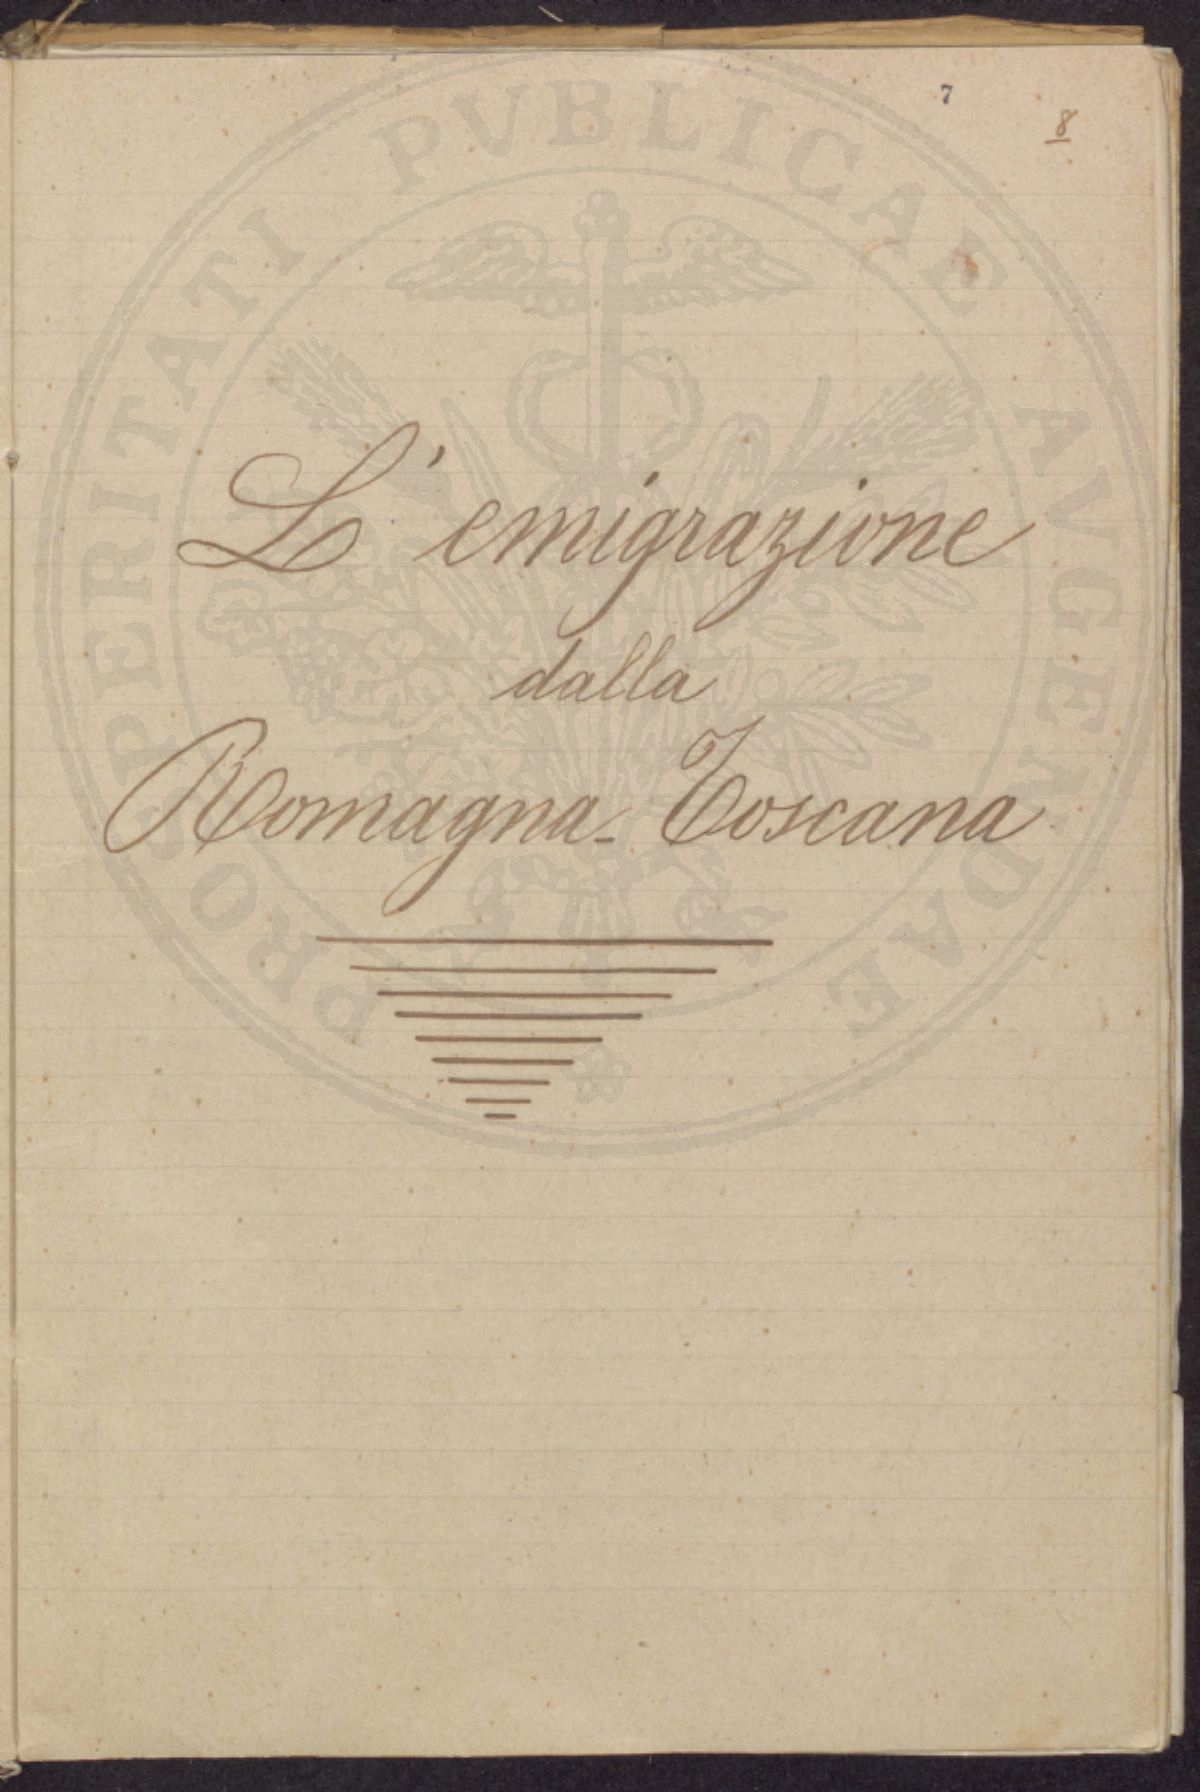 7
8
PROSPERITATI PVBLICAE AVGENDAE
L'emigrazione
dalla
Romagna-Toscana